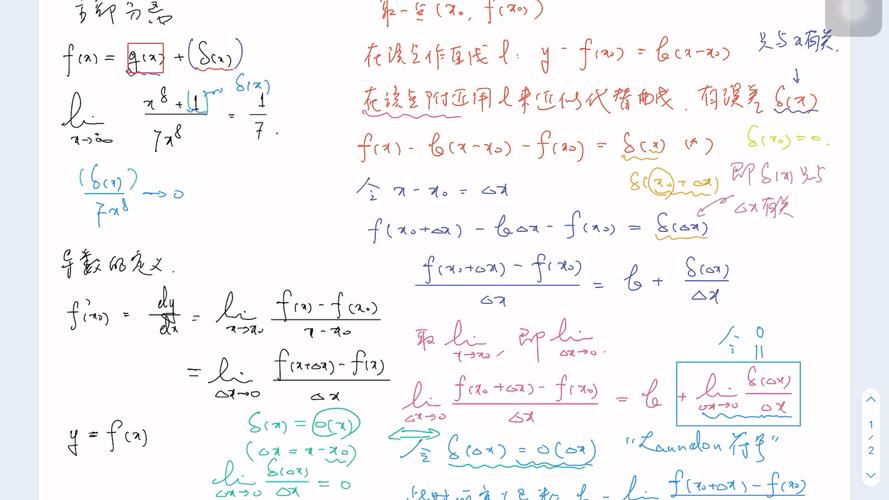 f(x) = g(x) + (δ(x))
lim x→∞ (x⁸ + 1)/(7x⁸) = 1/7.
δ(x)
(δ(x))/(7x⁸) → 0
导数的定义.
f'(x₀) = dy/dx = lim x→x₀ (f(x) - f(x₀))/(x - x₀)
= lim Δx→0 (f(x+Δx) - f(x))/Δx
y = f(x)
δ(x) = o(x)
(Δx = x - x₀)
lim Δx→0 δ(Δx)/Δx = 0
取一点(x₀, f(x₀))
在该点作直线 l: y - f(x₀) = k(x-x₀)
只与x有关.
在该点附近用l来近似代替曲线. 有误差 δ(x)
f(x) - k(x-x₀) - f(x₀) = δ(x) (*)
δ(x₀) = 0.
令 x - x₀ = Δx
δ(x₀ + Δx)
即 δ(x) 只与
Δx有关
f(x₀+Δx) - kΔx - f(x₀) = δ(Δx)
(f(x₀+Δx) - f(x₀))/Δx = k + δ(Δx)/Δx
取 lim x→x₀, 即 lim Δx→0.
令 0
lim Δx→0 (f(x₀+Δx) - f(x₀))/Δx = k + lim Δx→0 δ(Δx)/Δx
令 δ(Δx) = o(Δx)
"Laundon 符号"
1
2